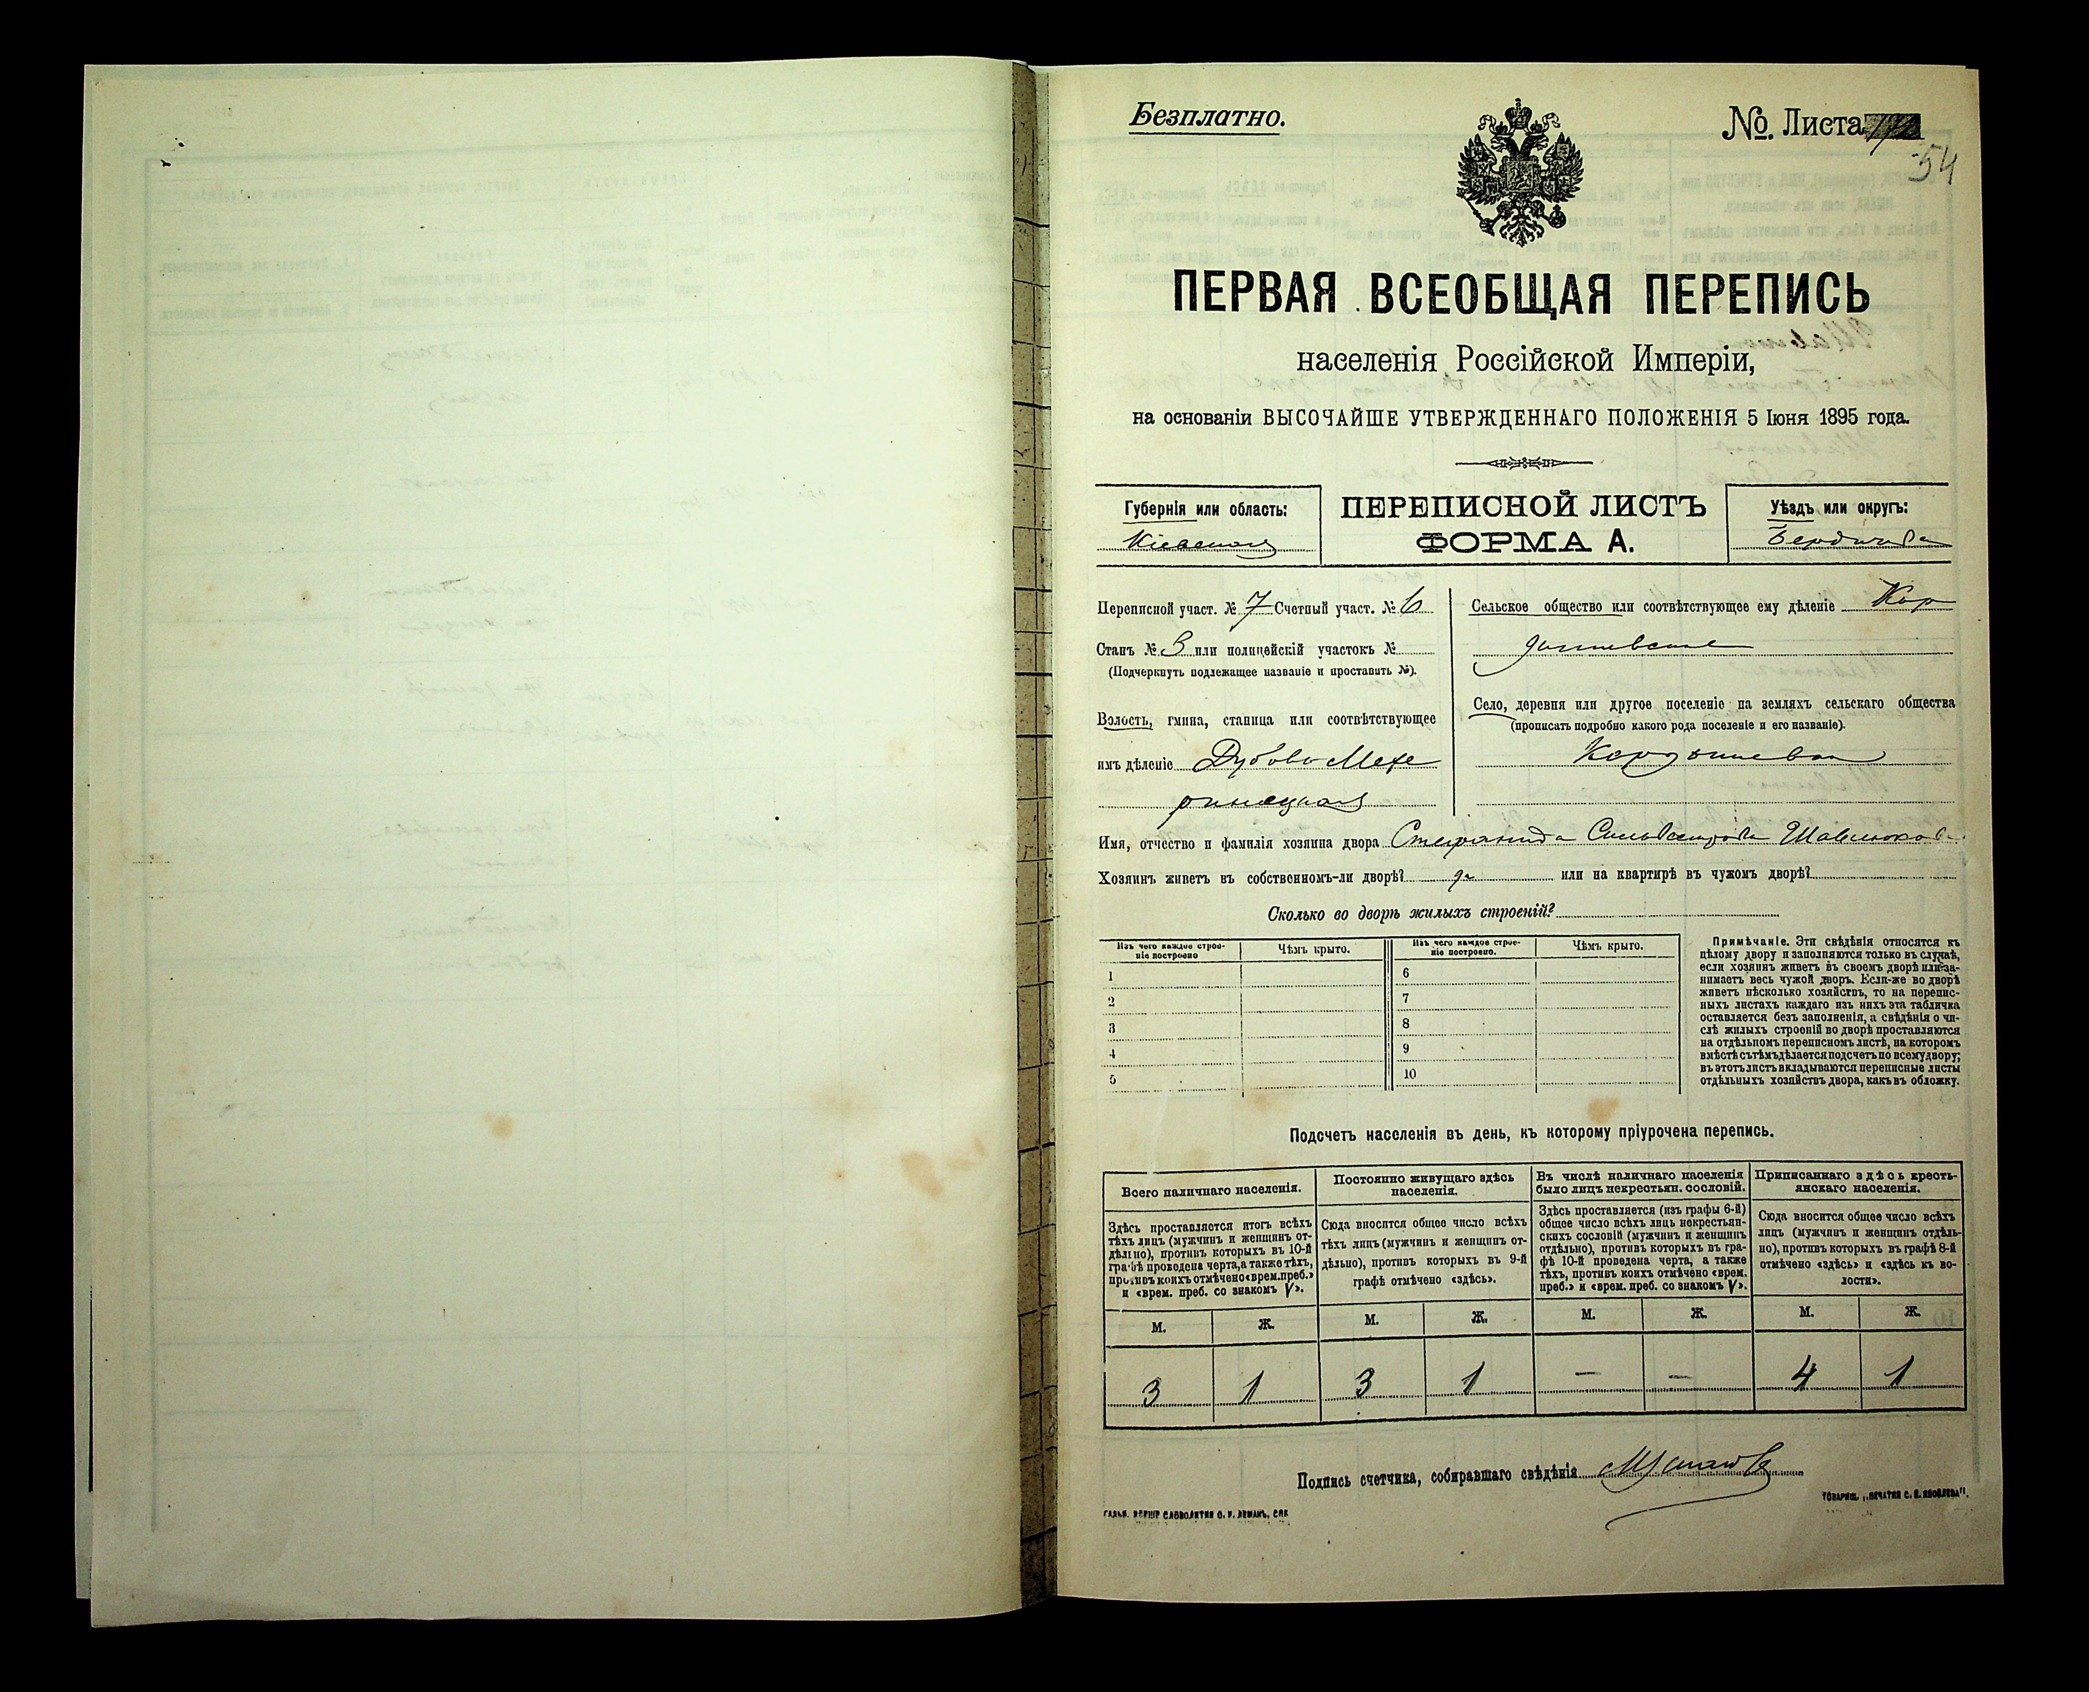 Безплатно.
№. Листа
54
ПЕРВАЯ ВСЕОБЩАЯ ПЕРЕПИСЬ
населенія Россійской Имперіи,
на основаніи ВЫСОЧАЙШЕ УТВЕРЖДЕННАГО ПОЛОЖЕНІЯ 5 Іюня 1895 года.
Губернія или область:
Кіевская
ПЕРЕПИСНОЙ ЛИСТЪ
ФОРМА А.
Уѣздъ или округъ:
Бердичевъ
Переписной участ. № 7 Счетный участ. № 6
Станъ № 3 или полицейскій участокъ №
(Подчеркнуть подлежащее названіе и проставить №).
Волость, гмина, станица или соотвѣтствующее
имъ дѣленіе Дубово Мехе
ринецкая
Сельское общество или соотвѣтствующее ему дѣленіе Кор
дышевское
Село, деревня или другое поселеніе на земляхъ сельскаго общества
(прописать подробно какого рода поселеніе и его названіе).
Кордышевка
Имя, отчество и фамилія хозяина двора Стефанида Сильвестрова Шавлюкова
Хозяинъ живетъ въ собственномъ-ли дворѣ? да или на квартирѣ въ чужомъ дворѣ?
Сколько во дворѣ жилыхъ строеній?
Изъ чего каждое строе-
ніе построено
Чѣмъ крыто.
Изъ чего каждое строе-
ніе построено.
Чѣмъ крыто.
1
2
3
4
5
6
7
8
9
10
Примѣчаніе. Эти свѣдѣнія относятся къ
цѣлому двору и заполняются только въ случаѣ,
если хозяинъ живетъ въ своемъ дворѣ или за-
нимаетъ весь чужой дворъ. Если-же во дворѣ
живетъ нѣсколько хозяйствъ, то на перепис-
ныхъ листахъ каждаго изъ нихъ эта табличка
оставляется безъ заполненія, а свѣдѣнія о чи-
слѣ жилыхъ строеній во дворѣ проставляются
на отдѣльномъ переписномъ листѣ, на которомъ
вмѣстѣ съ тѣмъ дѣлается подсчетъ по всему двору;
въ этотъ листъ вкладываются переписные листы
отдѣльныхъ хозяйствъ двора, какъ въ обложку.
Подсчетъ населенія въ день, къ которому пріурочена перепись.
Всего наличнаго населенія.
Постоянно живущаго здѣсь
населенія.
Въ числѣ наличнаго населенія
было лицъ некрестьян. сословій.
Приписаннаго здѣсь кресть-
янскаго населенія.
Здѣсь проставляется итогъ всѣхъ
тѣхъ лицъ (мужчинъ и женщинъ от-
дѣльно), противъ которыхъ въ 10-й
графѣ проведена черта, а также тѣхъ,
противъ коихъ отмѣчено «врем. преб.»
и «врем. преб. со знакомъ V».
Сюда вносится общее число всѣхъ
тѣхъ лицъ (мужчинъ и женщинъ от-
дѣльно), противъ которыхъ въ 9-й
графѣ отмѣчено «здѣсь».
Здѣсь проставляется (изъ графы 6-й)
общее число всѣхъ лицъ некрестьян-
скихъ сословій (мужчинъ и женщинъ
отдѣльно), противъ которыхъ въ гра-
фѣ 10-й проведена черта, а также
тѣхъ, противъ коихъ отмѣчено «врем.
преб.» и «врем. преб. со знакомъ V».
Сюда вносится общее число всѣхъ
лицъ (мужчинъ и женщинъ отдѣль-
но), противъ которыхъ въ графѣ 8-й
отмѣчено «здѣсь» и «здѣсь въ во-
лости».
М. Ж. М. Ж. М. Ж. М. Ж.
3 1 3 1 — — 4 1
Подпись счетчика, собиравшаго свѣдѣнія
ТОВАРИЩ. „ПЕЧАТНЯ С. П. ЯКОВЛЕВА“.
СЛОВОЛИТНИ О. И. ЛЕМАНЪ, СПБ